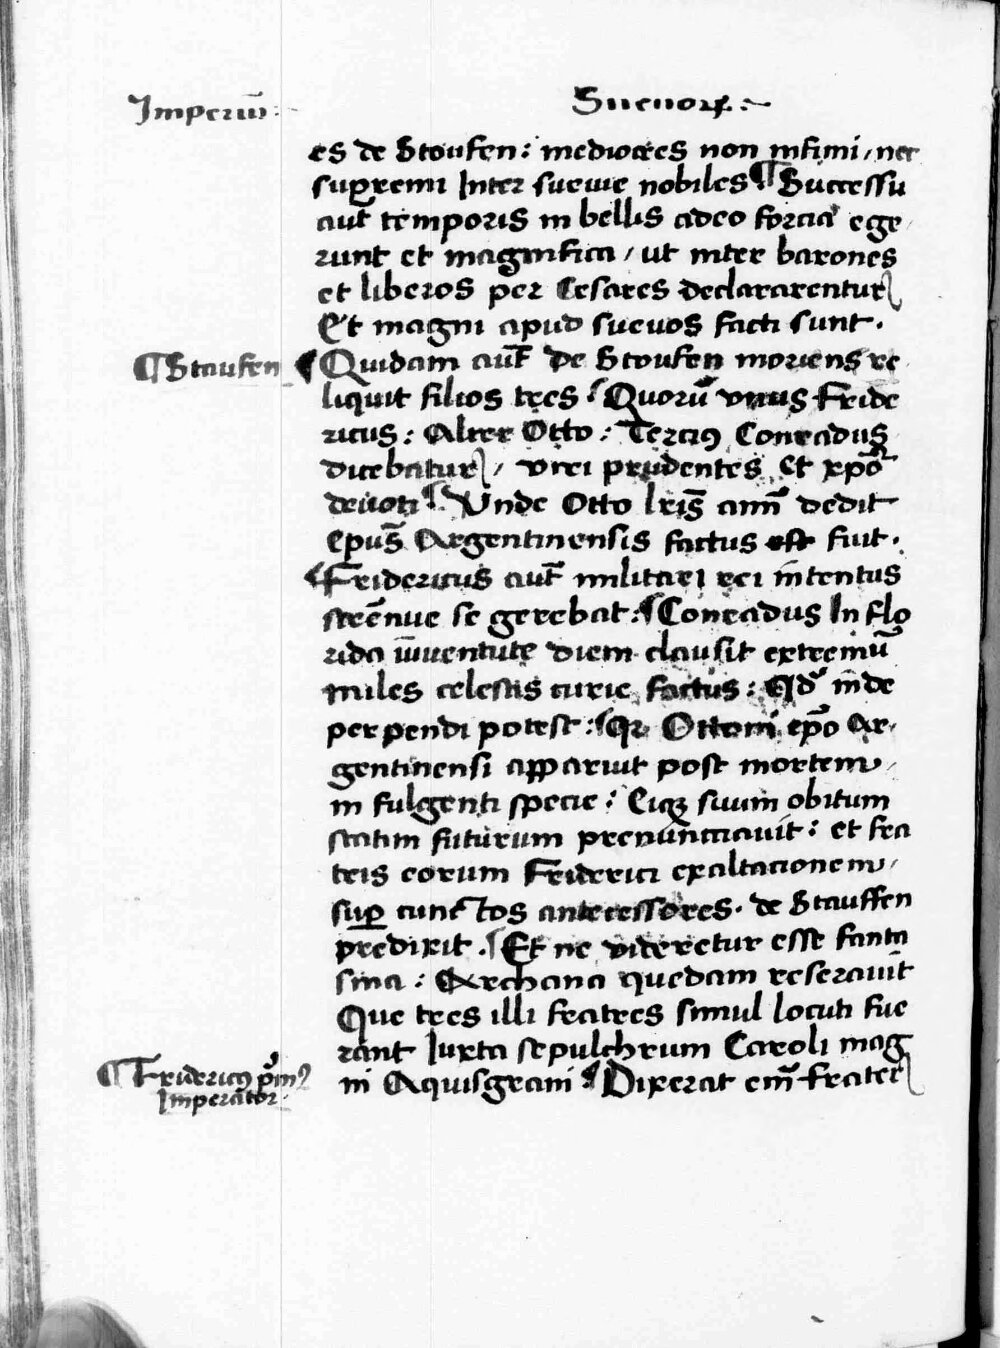 Imperiū :- Sueuoꝝ :~
es de Stoufen : mediocres non infimi / nec
supremi Inter sueuie nobiles ¶ Successu
aut̄ temporis in bellis adeo forcia ege
runt et magnifica / ut inter barones
et liberos per Cesares declararentur
Et magni apud sueuos facti sunt .
¶ Staufen
¶ Quidam aut̄ de Stoufen moriens re
liquit filios tres . ¶ Quorū vnus Fride
ricus : Alter Otto : Tercius Conradus
dicebatur / viri prudentes et xp̄o
deuoti ¶ Unde Otto lr̄is anim̄ dedit
Ep̄us Argentinensis factus est fuit .
¶ Fridericus aut̄ militari rei intentus
strēnue se gerebat : ¶ Conradus In flo
rida iuuentute diem clausit extremū
miles celestis curie factus : Qd̓ inde
perpendi potest : ¶ Qr Ottoni ep̄o Ar-
gentinensi apparuit post mortem /
in fulgenti specie : Eiqꝫ suum obitum
statim futurum prenunciauit : et fra
tris eorum Friderici exaltacionem /
suꝑ cunctos antecessores . de Stauffen
predixit . ¶ Et ne videretur esse fanta
sma : Archana quedam reserauit
Que tres illi fratres simul locuti fue
rant Iuxta sepulchrum Caroli mag
ni Aquisgrani ¶ Dixerat em̄ frater
¶ Fridericꝰ p̄mꝰ
Imperator .